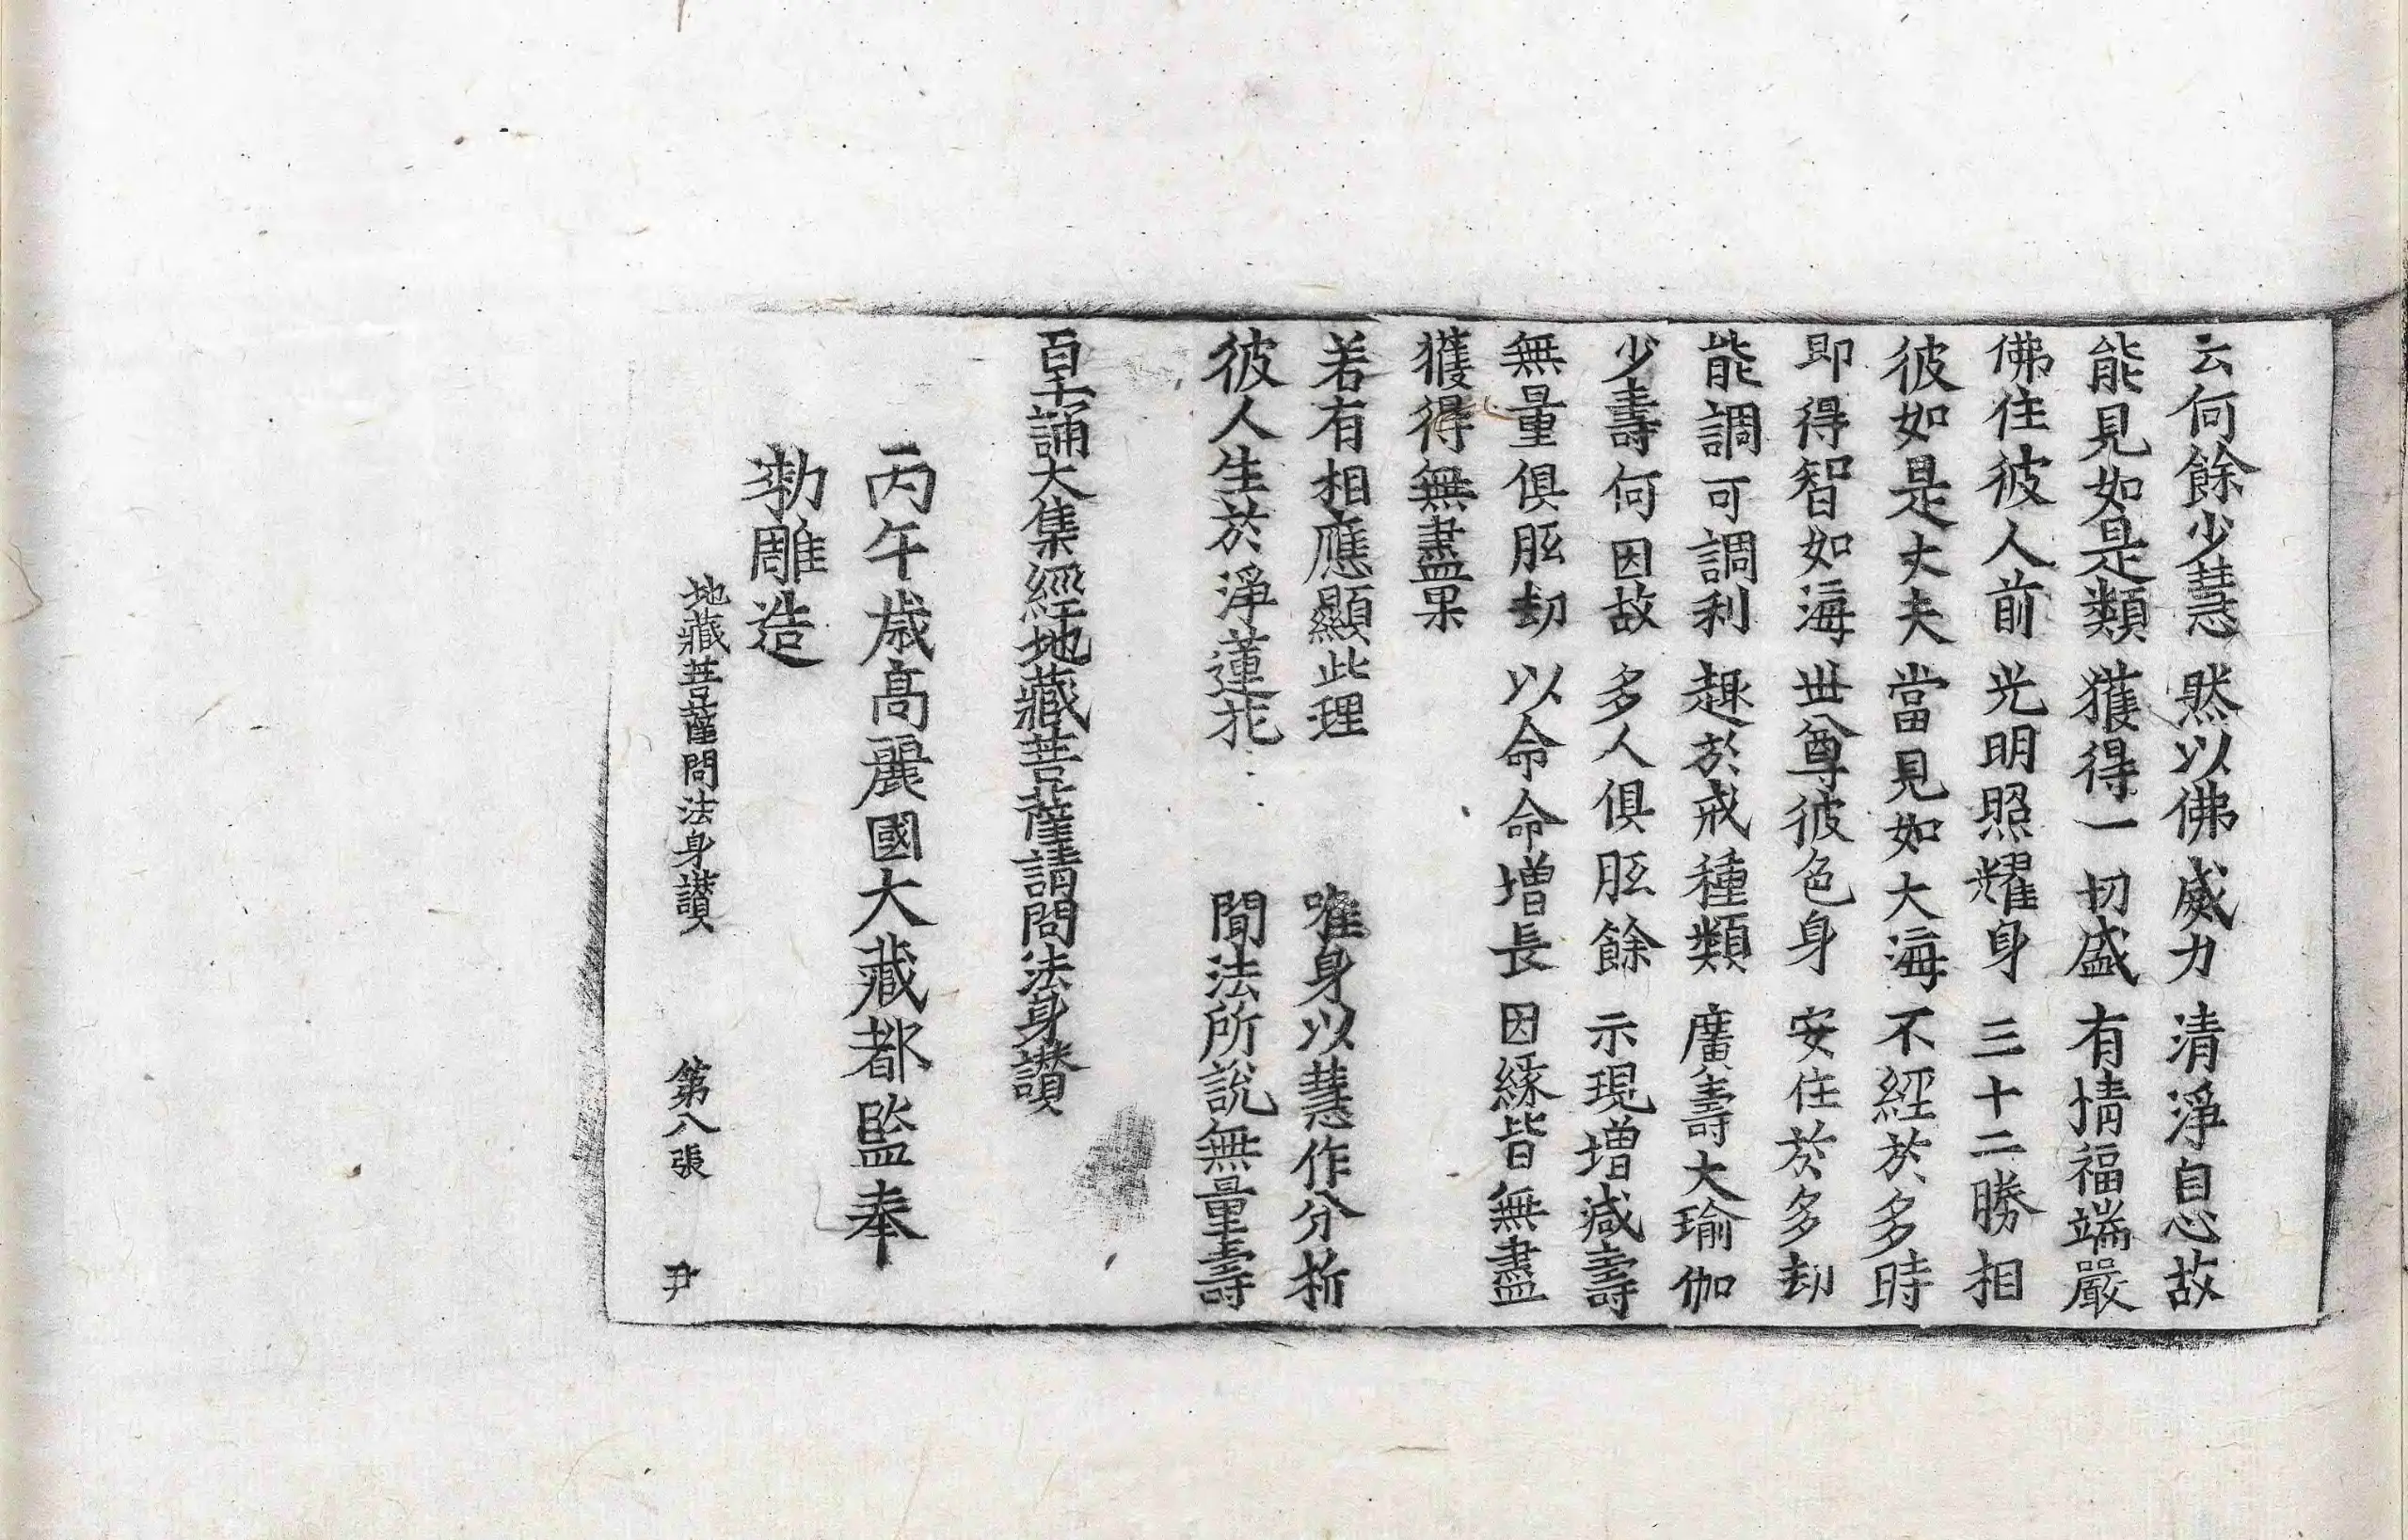 云何餘少慧 然以佛威力 清淨自心故
能見如是類 獲得一切盛 有情福端嚴
佛住彼人前 光明照耀身 三十二勝相
彼如是丈夫 當見如大海 不經於多時
即得智如海 世尊彼色身 安住於多劫
能調可調利 趣於戒種類 廣壽大瑜伽
少壽何因故 多人俱胝餘 示現增減壽
無量俱胝劫 以命命增長 因緣皆無盡
獲得無盡果
若有相應顯此理 唯身以慧作分析
彼人生於淨蓮花 聞法所說無量壽
百千誦大集經地藏菩薩請問法身讚
丙午歲高麗國大藏都監奉
勑雕造
地藏菩薩問法身讚 第八張 尹